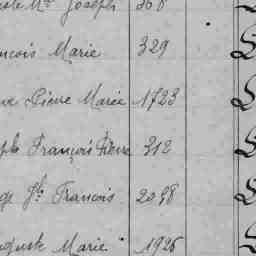 Joseph 368
ncois Marie 329
Pierre Marie 1723
François Pierre 312
François 2058
uguste Marie 1926